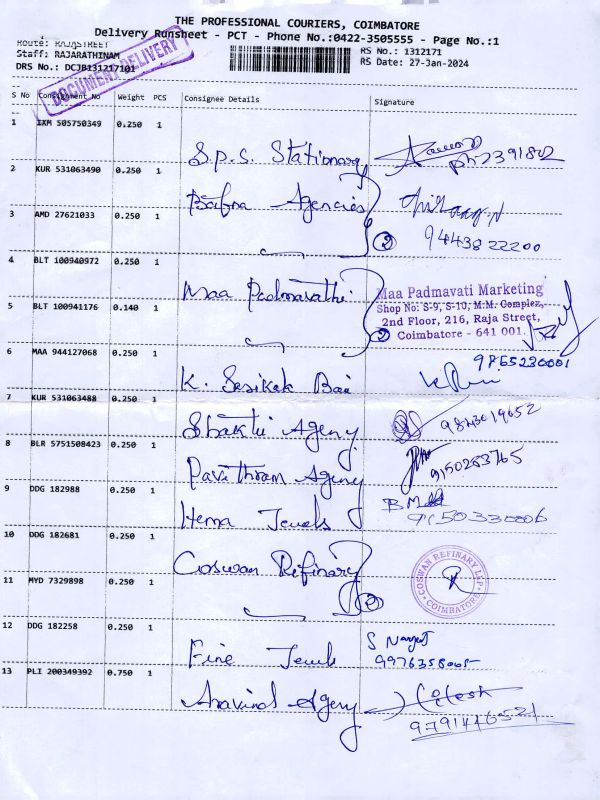 THE PROFESSIONAL COURIERS, COIMBATORE
Delivery Runsheet - PCT - Phone No.:0422-3505555 - Page No.:1
Route: RAJASTREET
Staff: RAJARATHINAM
DRS No.: DCJB131217101
RS No.: 1312171
RS Date: 27-Jan-2024
DOCUMENT DELIVERY
S No Consignment No Weight PCS Consignee Details Signature
1 IXM 505750349 0.250 1
S.P.S. Stationary
Ph 2391802
2 KUR 531063490 0.250 1
Bafna Agencies
3 AMD 27621033 0.250 1
2 9443822200
4 BLT 100940972 0.250 1
Maa Padmavathi
Maa Padmavati Marketing
Shop No: S-9, S-10, M.M. Complez,
2nd Floor, 216, Raja Street,
Coimbatore - 641 001.
5 BLT 100941176 0.140 1
2
6 MAA 944127068 0.250 1
9865230001
K. Sasikak Bai
7 KUR 531063488 0.250 1
Shakti Agency
9843019652
8 BLR 5751508423 0.250 1
Pavithram Agency
9150283765
9 DDG 182988 0.250 1
Hema Jewels
9150330006
10 DDG 182681 0.250 1
Coswan Refinary
COSWAN REFINARY LLP
COIMBATORE
11 MYD 7329898 0.250 1
2
12 DDG 182258 0.250 1
Fine Jewels
9976358005
13 PLI 200349392 0.750 1
Aravind Agency
9791446521